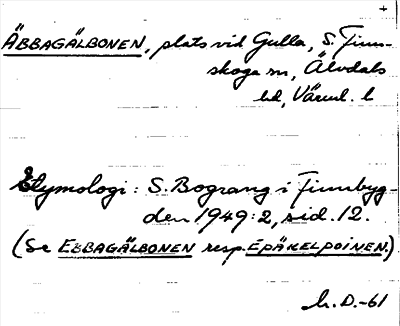 +
ÄBBAGÄLBONEN, plats vid Gulla, S. Finn-
skoga sn, Älvdals
hd, Värml. l
Etymologi: S. Bograng i Finnbyg-
den 1949:2, sid. 12.
(Se EBBAGÄLBONEN resp. EPÄKELPOINEN.)
h. D.-61